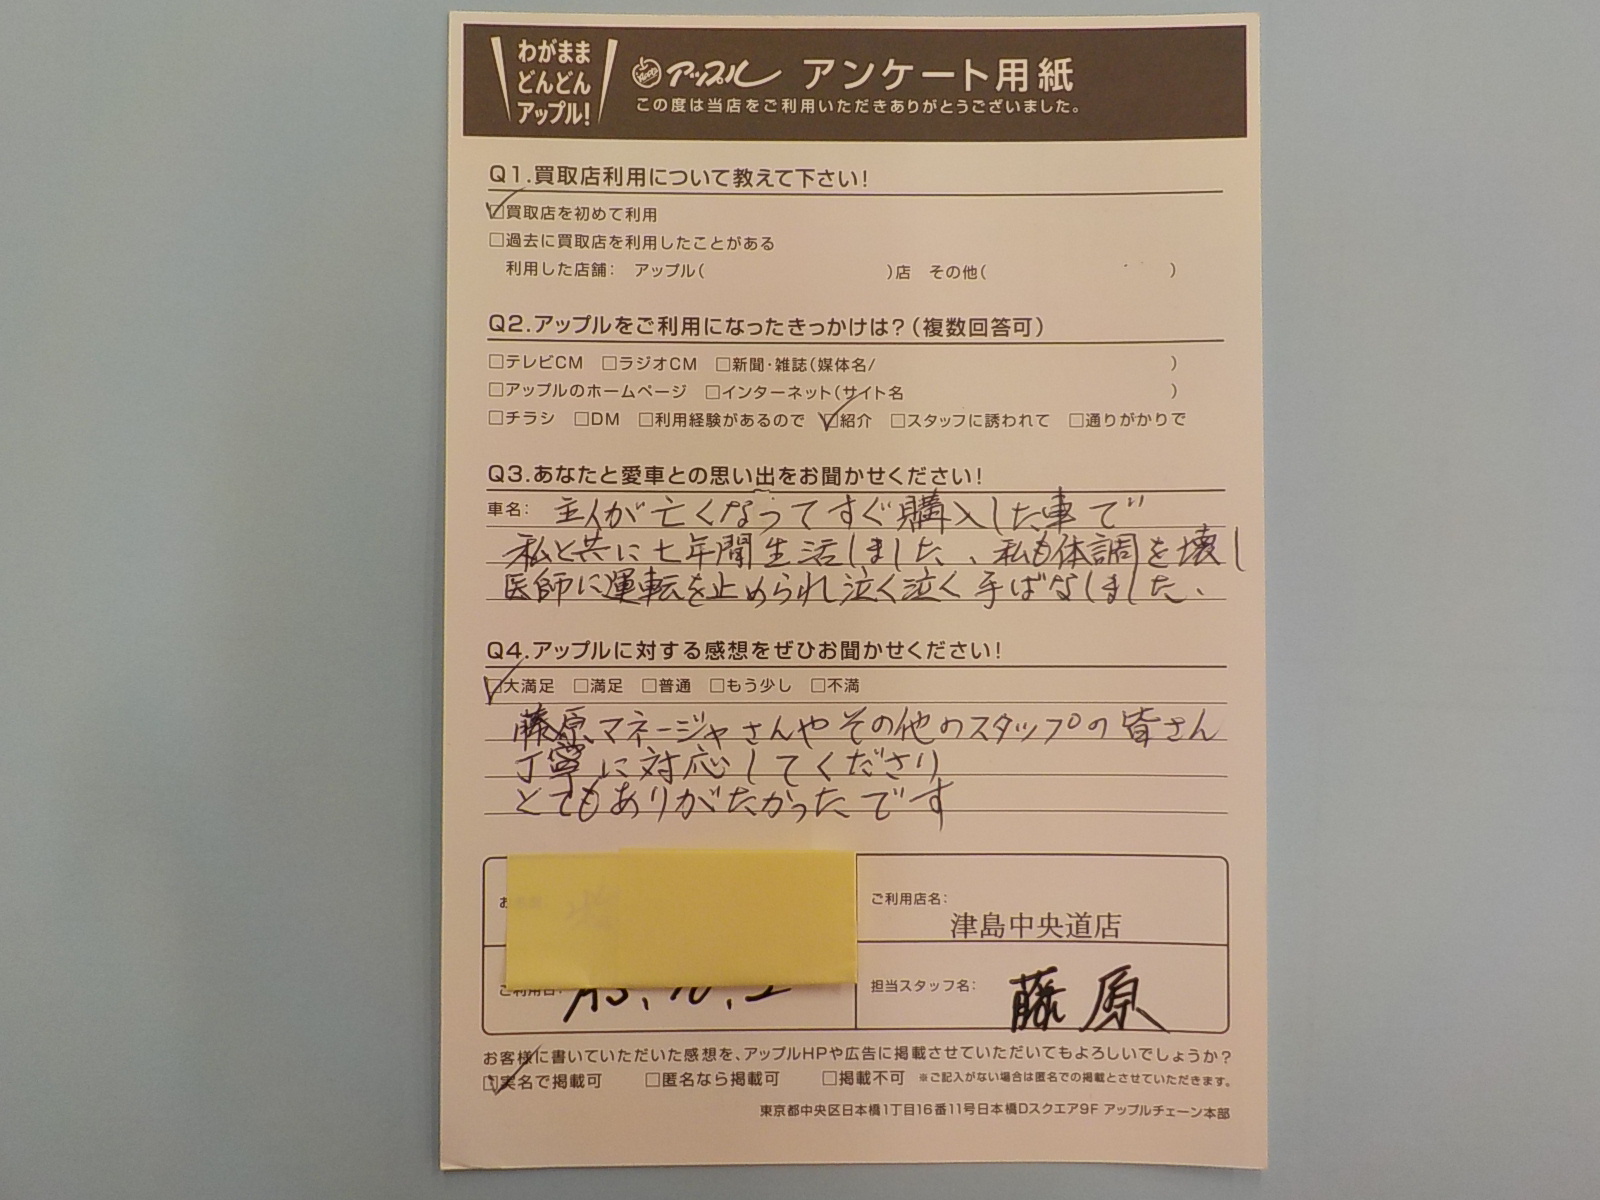 わがまま
どんどん
アップル!
アップル アンケート用紙
この度は当店をご利用いただきありがとうございました。
Q1.買取店利用について教えて下さい!
☑買取店を初めて利用
□過去に買取店を利用したことがある
利用した店舗: アップル( )店 その他( )
Q2.アップルをご利用になったきっかけは?(複数回答可)
□テレビCM □ラジオCM □新聞・雑誌(媒体名/ )
□アップルのホームページ □インターネット(サイト名 )
□チラシ □DM □利用経験があるので ☑紹介 □スタッフに誘われて □通りがかりで
Q3.あなたと愛車との思い出をお聞かせください!
車名: 主人が亡くなってすぐ購入した車で
私と共に七年間生活しました、私も体調を壊し
医師に運転を止められ泣く泣く手ばなしました、
Q4.アップルに対する感想をぜひお聞かせください!
☑大満足 □満足 □普通 □もう少し □不満
藤原マネージャさんやその他のスタップの皆さん
丁寧に対応してくださり
とてもありがたかったです
ご利用店名:
津島中央道店
ご利用日:
担当スタッフ名: 藤原
お客様に書いていただいた感想を、アップルHPや広告に掲載させていただいてもよろしいでしょうか?
☑実名で掲載可 □匿名なら掲載可 □掲載不可 ※ご記入がない場合は匿名での掲載とさせていただきます。
東京都中央区日本橋1丁目16番11号日本橋Dスクエア9F アップルチェーン本部